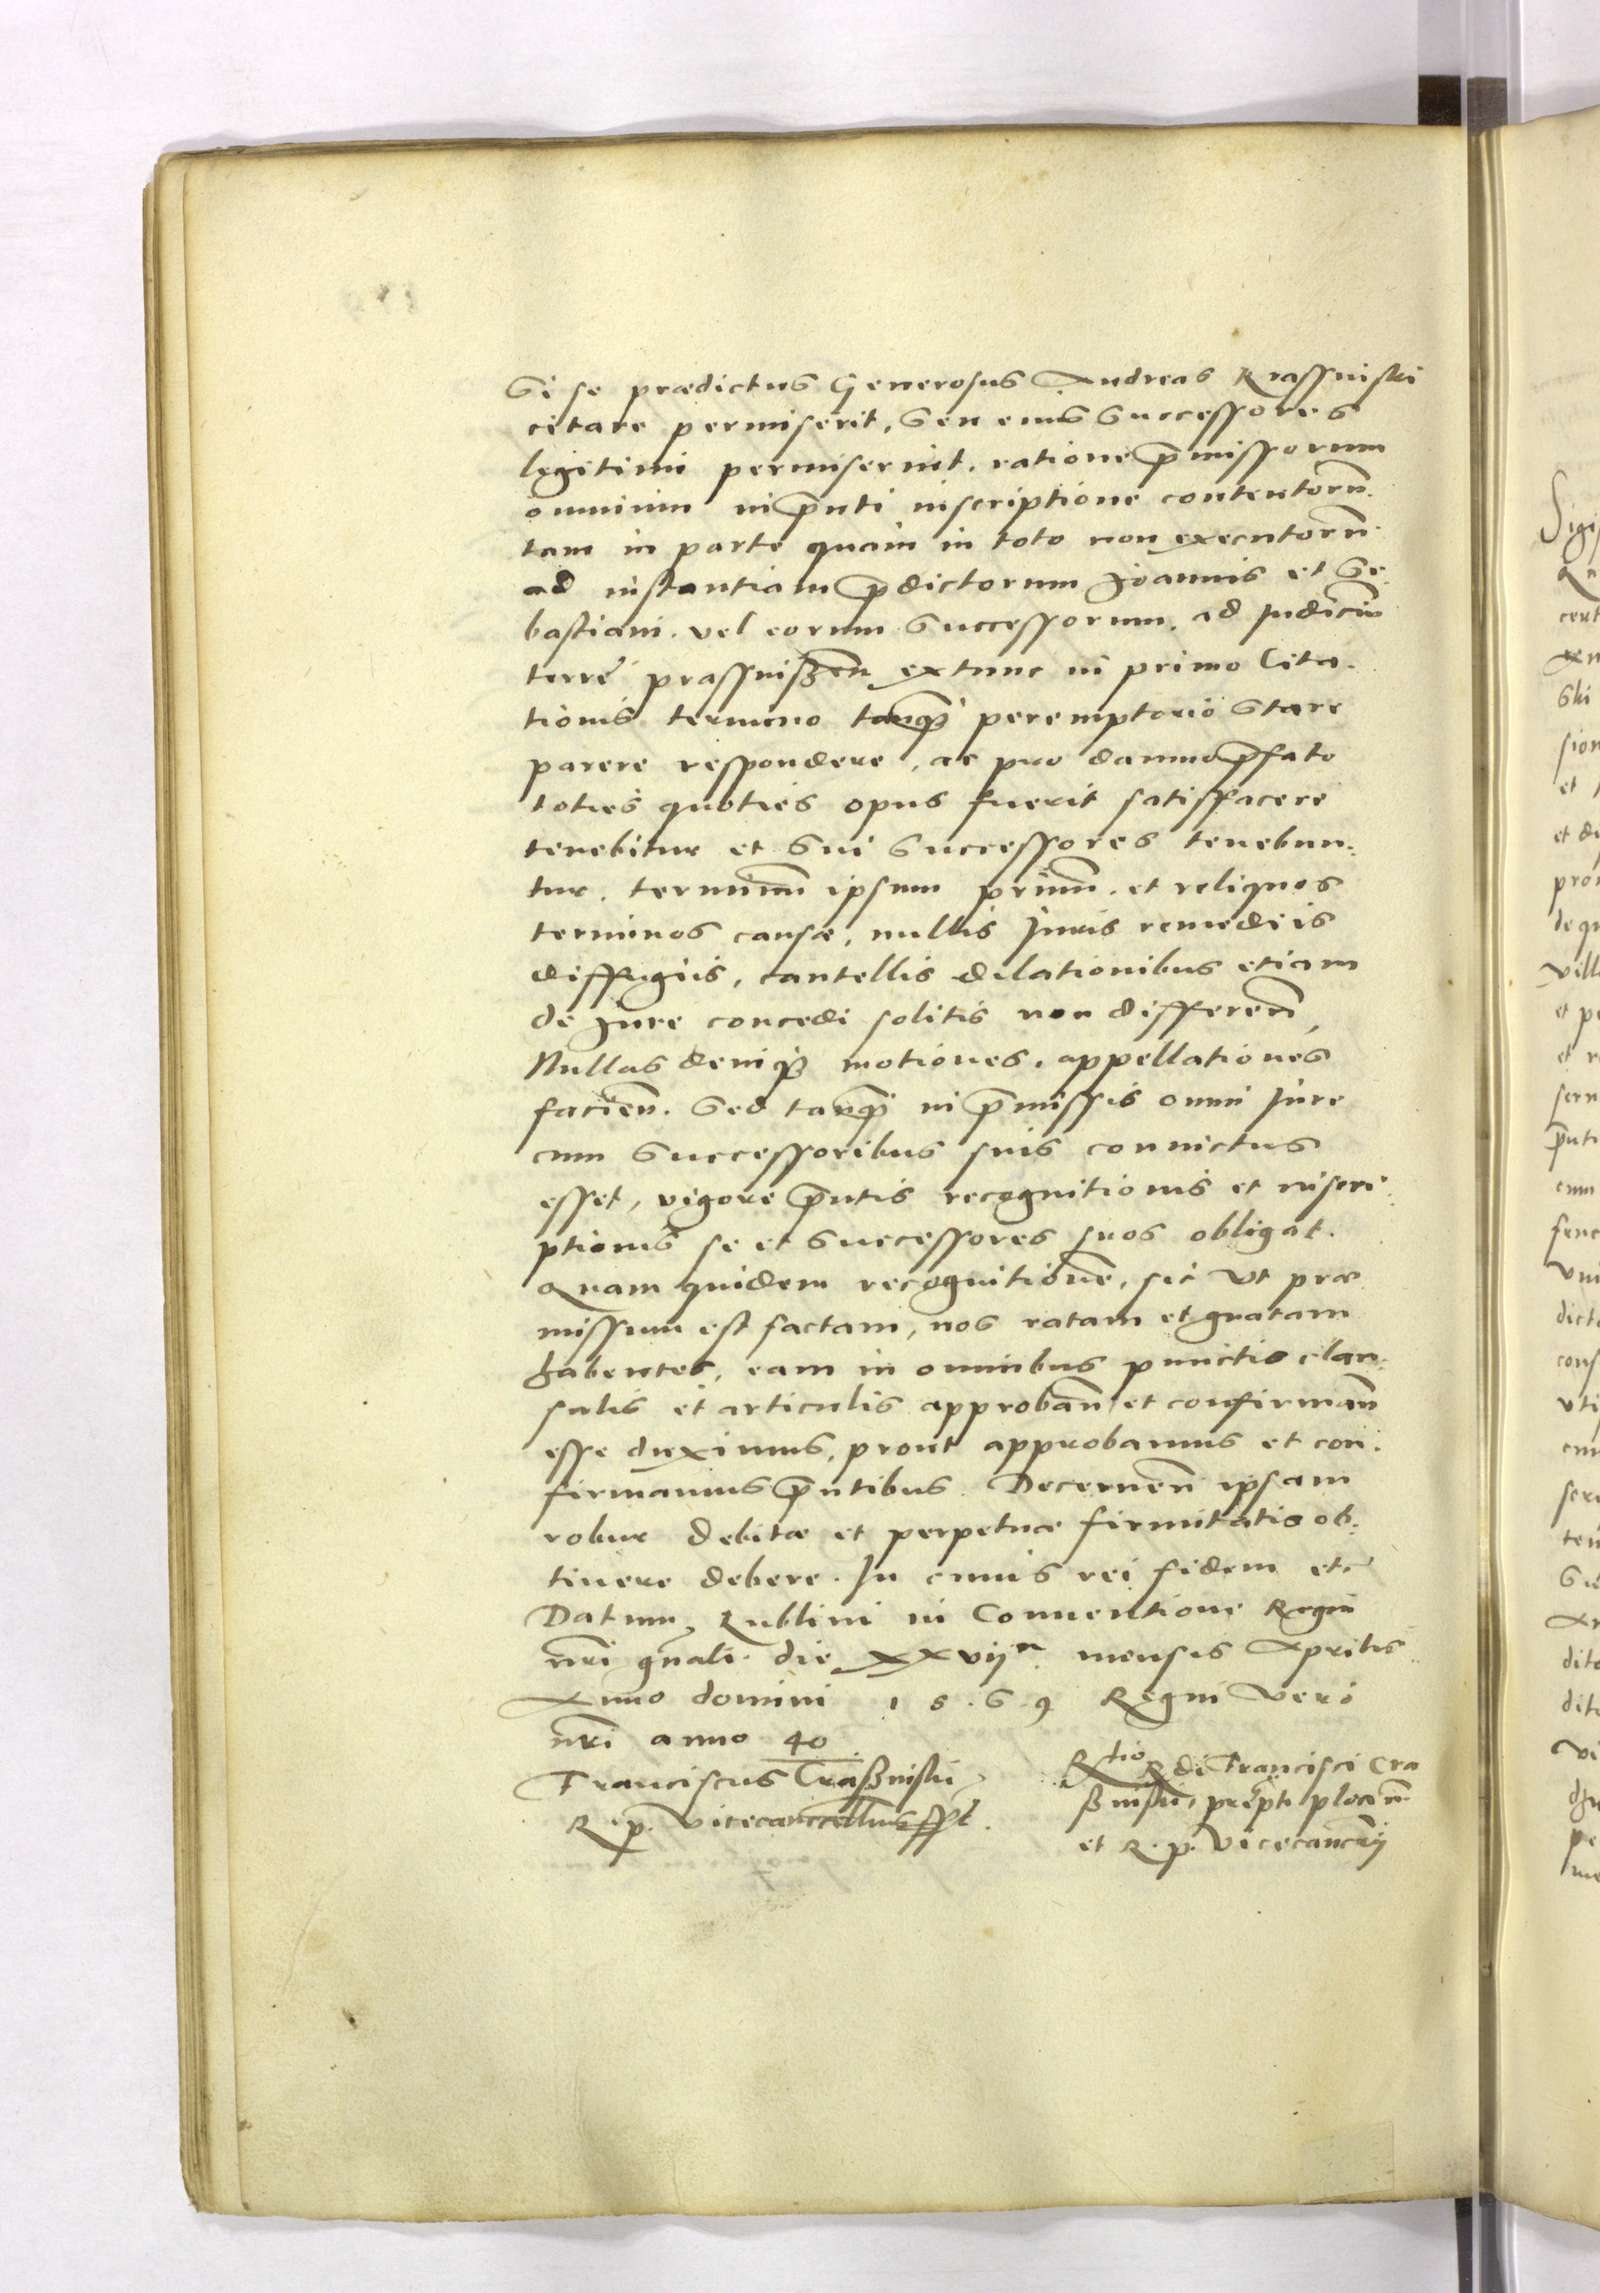 Si se prædictus Generosus Andreas Krassniski
citare permiserit, Seu eius Successores
legitimi permiserint. ratione p̄missorum
omnium in p̄nti inscriptione contentorū.
tam in parte quam in toto non executorū.
ad instantiam p̄dictorum Joannis et Se-
bastiani. vel eorum Successorum. ad Judiciū
terre prassnißen̄ extunc in primo Cita-
tionis termino tanq̄ peremptorio Stare
parere respondere, ac pro damno p̄fato
toties quoties opus fuerit satisfacere
tenebitur et Sui Successores tenebun-
tur. terminū ipsum primū. et reliquos
terminos causæ, nullis Juris remedeis
diffugiis, cautellis dilationibus etiam
de Jure concedi solitis non differen̄,
Nullas deniq3 motiones, appellationes
facien̄. Sed tanq̄ in p̄missis omni Jure
cum Successoribus suis conuictus
esset, vigore p̄ntis recognitionis et inscri-
ptionis se et Successores suos obligat.
Quam quidem recognitionē, sic vt præ
missum est factam, nos ratam et gratam
habentes, eam in omnibus punctis clau-
sulis et articulis approban̄ et confirman̄
esse duximus, prout approbamus et con-
firmamus p̄ntibus. Decernen̄ ipsam
robur debitæ et perpetuæ firmitatis ob-
tinere debere. In cuius rei fidem etc
Datum Lublini in Conuentione Regni
nr̄i gn̄ali. die xxvijᵃ mensis Aprilis
Anno domini 1 5 . 6 9 Regni vero
nr̄i anno 40
Franciscus Craßniski
R. p. Vicecancellarius sspt.
Rtio Rdi Francisci Cra
ßniski, præpti plocen̄.
et R. p. Vicecancrij